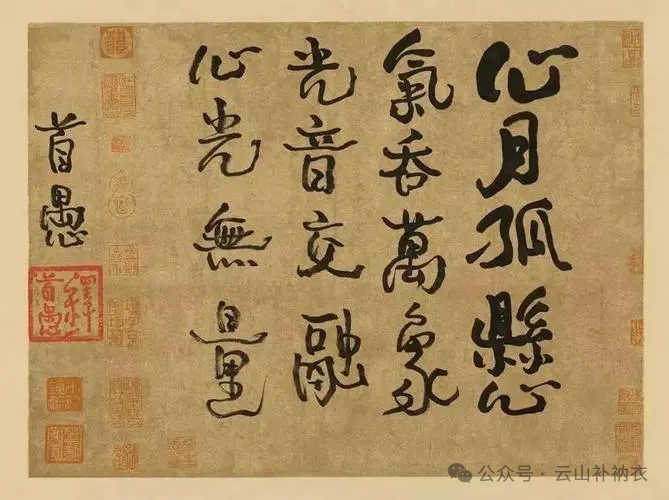 心月孤懸
氣吞萬象
光音交融
心光無量
首愚
公众号·云山补衲衣